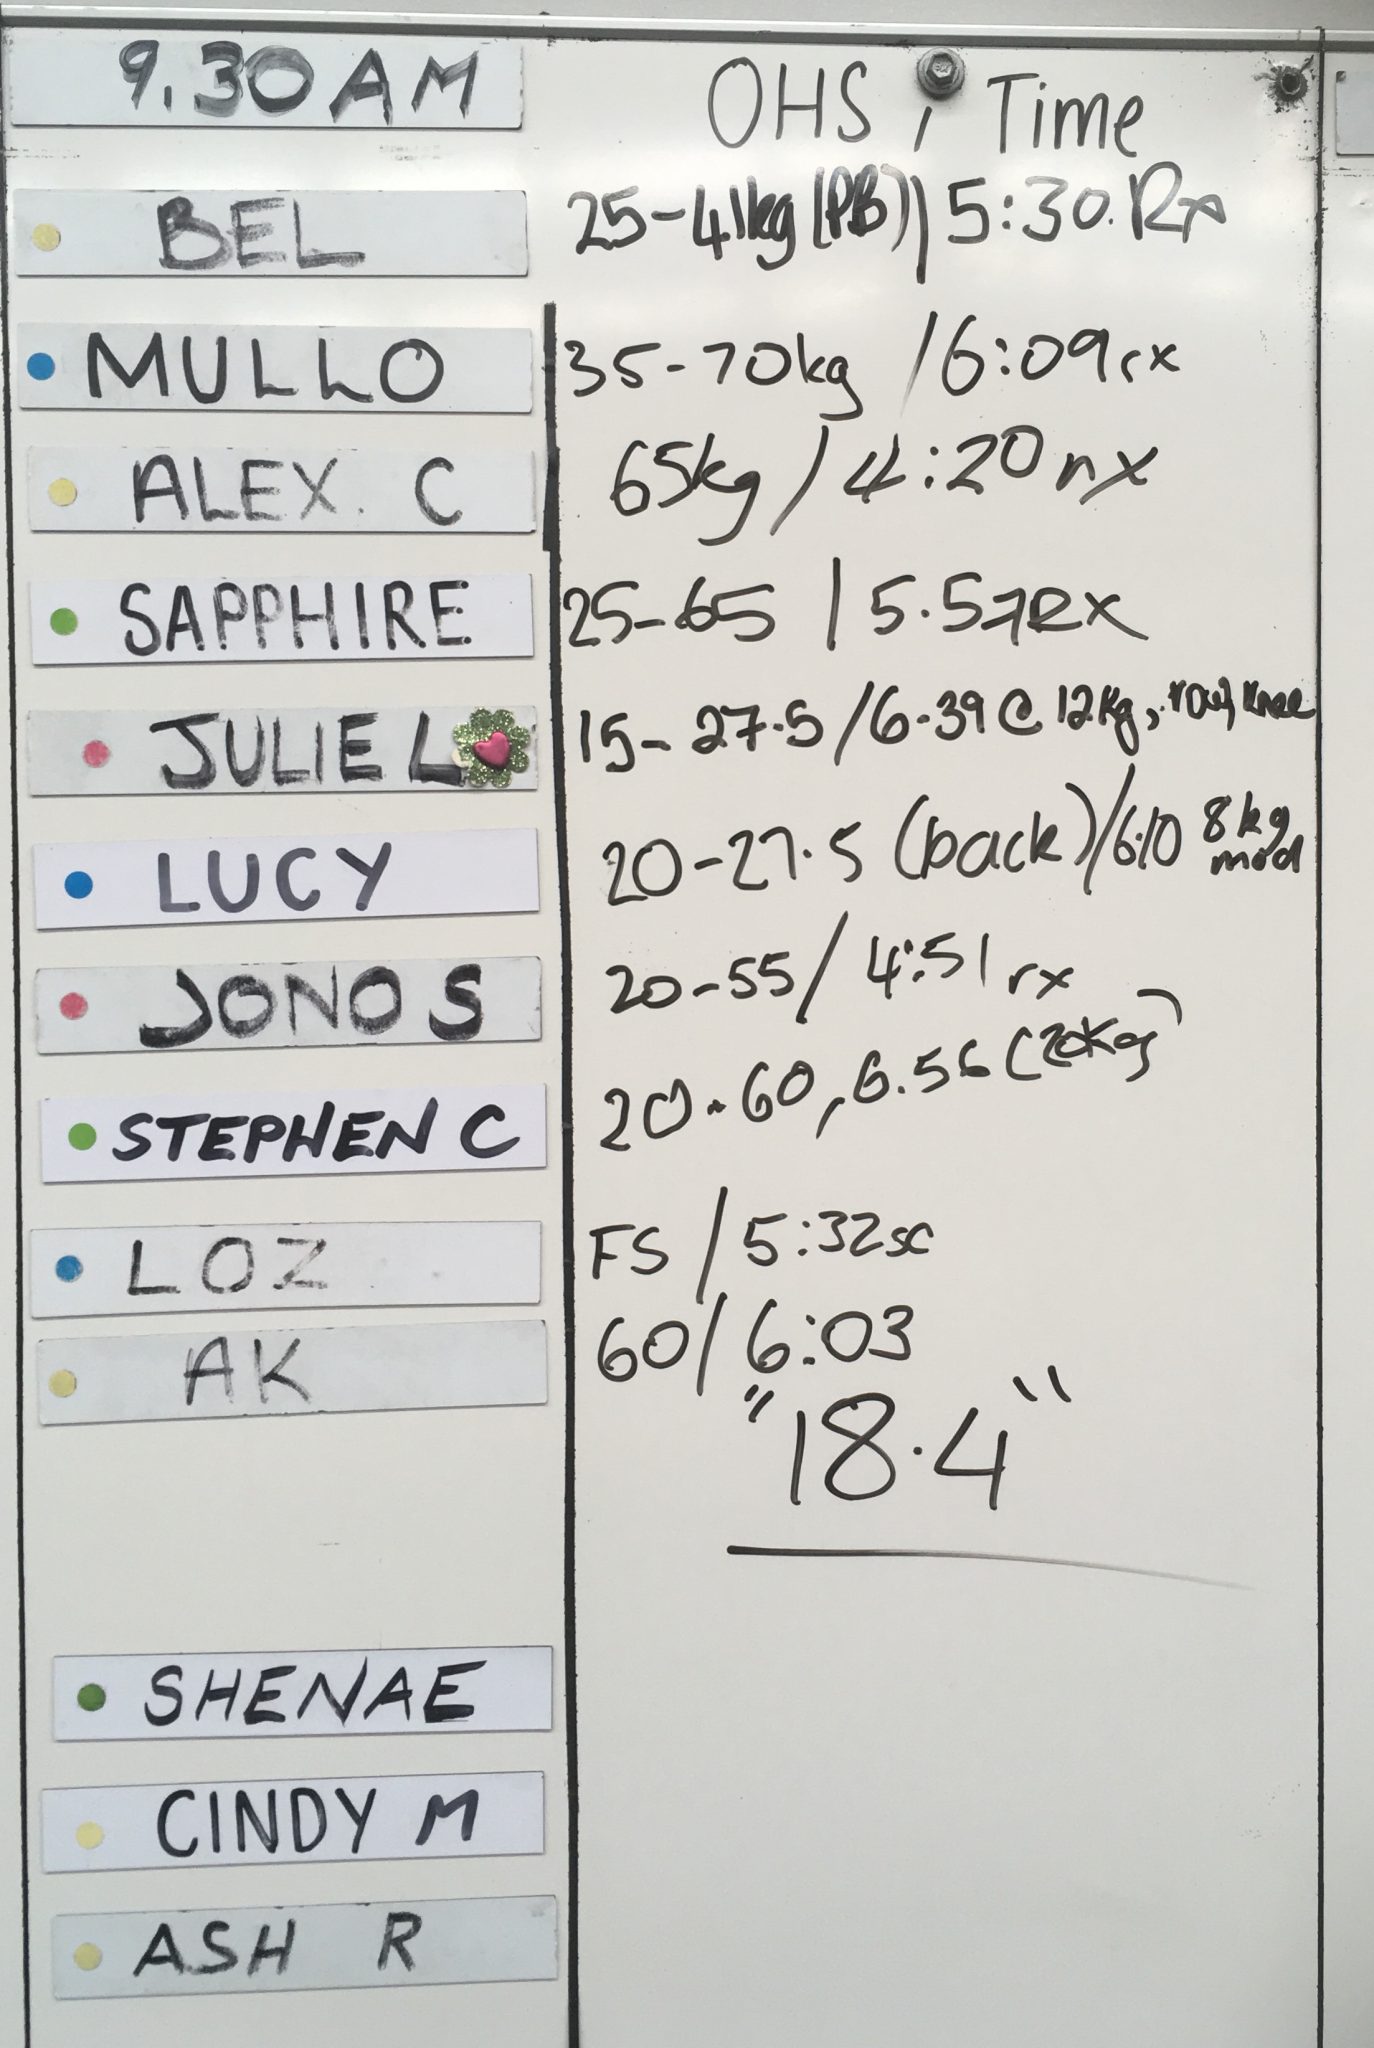 9.30AM OHS, Time
BEL 25-41kg (PB) | 5:30. Rx
MULLO 35-70kg / 6:09 rx
ALEX. C 65kg / 4:20 rx
SAPPHIRE 25-65 | 5.57Rx
JULIE L 15-27.5 / 6.39 @ 12kg, row, knee
LUCY 20-27.5 (back) / 6:10 8kg mod
JONO S 20-55 / 4:51 rx
STEPHEN C 20-60, 6.56 (20Kg)
LOZ FS / 5:32sc
AK 60 / 6:03
"18.4"
SHENAE
CINDY M
ASH R